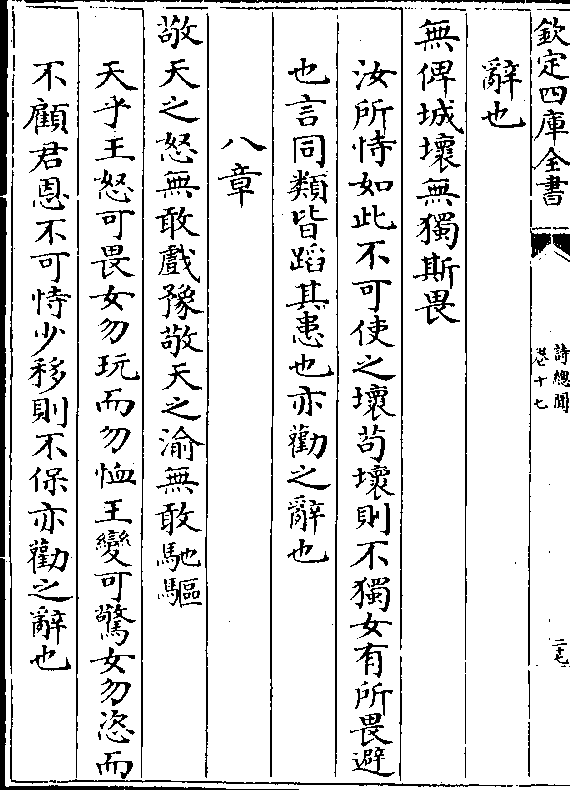 欽定四庫全書
詩總聞
卷十七
辭也
無俾城壞無獨斯畏
汝所恃如此不可使之壞苟壞則不獨女有所畏避
也言同類皆蹈其患也亦勸之辭也
八章
敬天之怒無敢戲豫敬天之渝無敢馳驅
天乎王怒可畏女勿玩而勿恤王變可驚女勿恣而
不顧君恩不可恃少移則不保亦勸之辭也